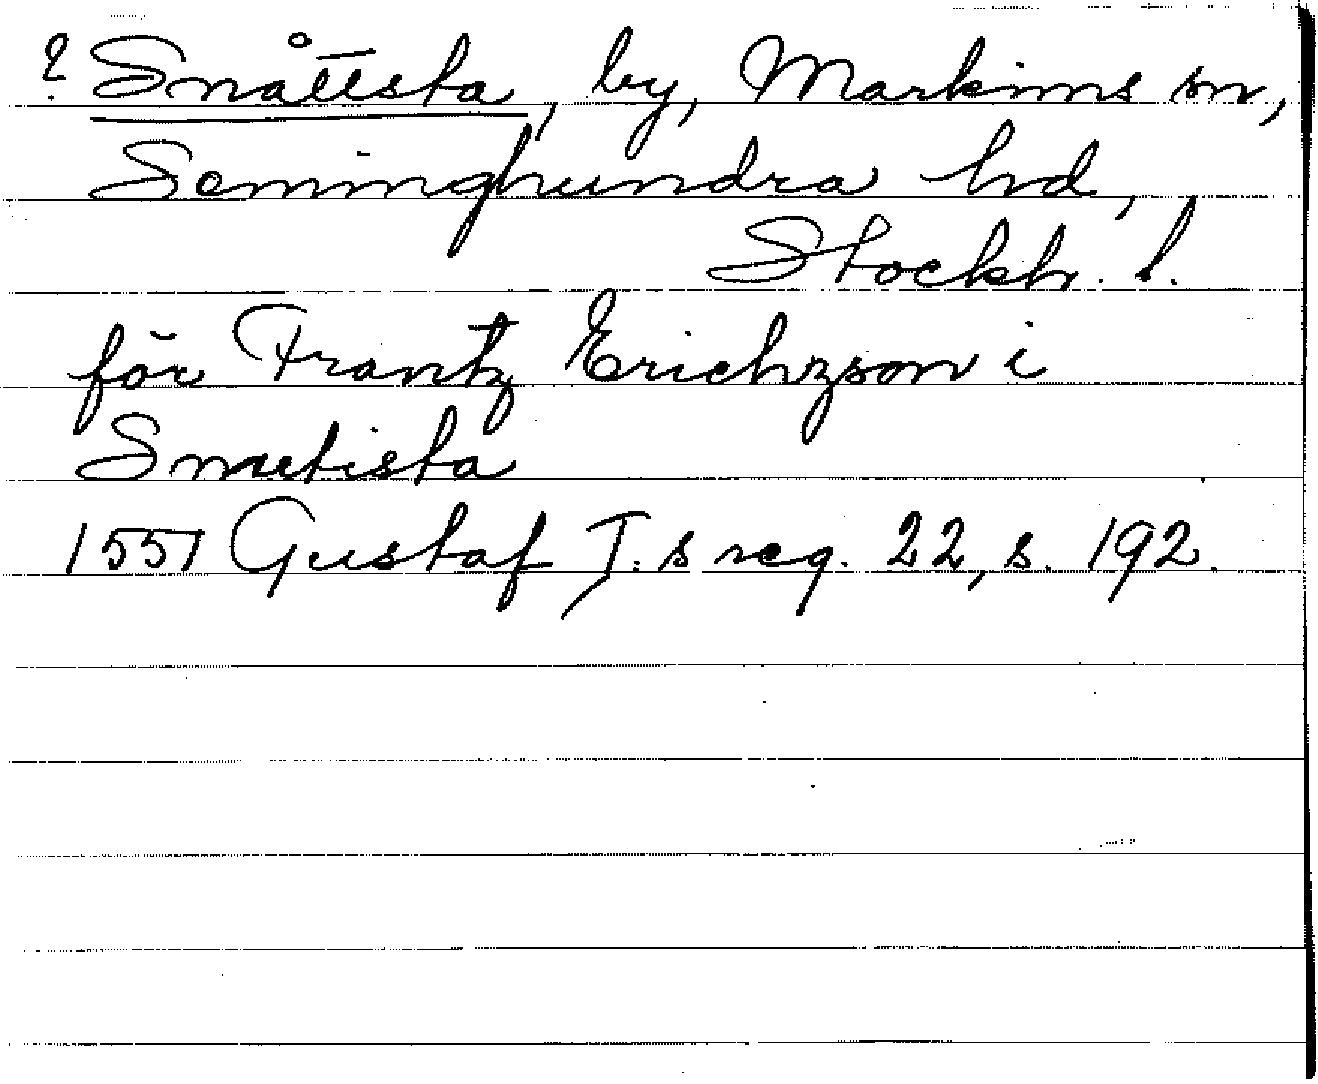 ? Snåttsta, by, Markims sn,
Seminghundra hd,
Stockh. l.
för Frantz Erichzson i
Snutista
1551 Gustaf I:s reg. 22, s. 192.